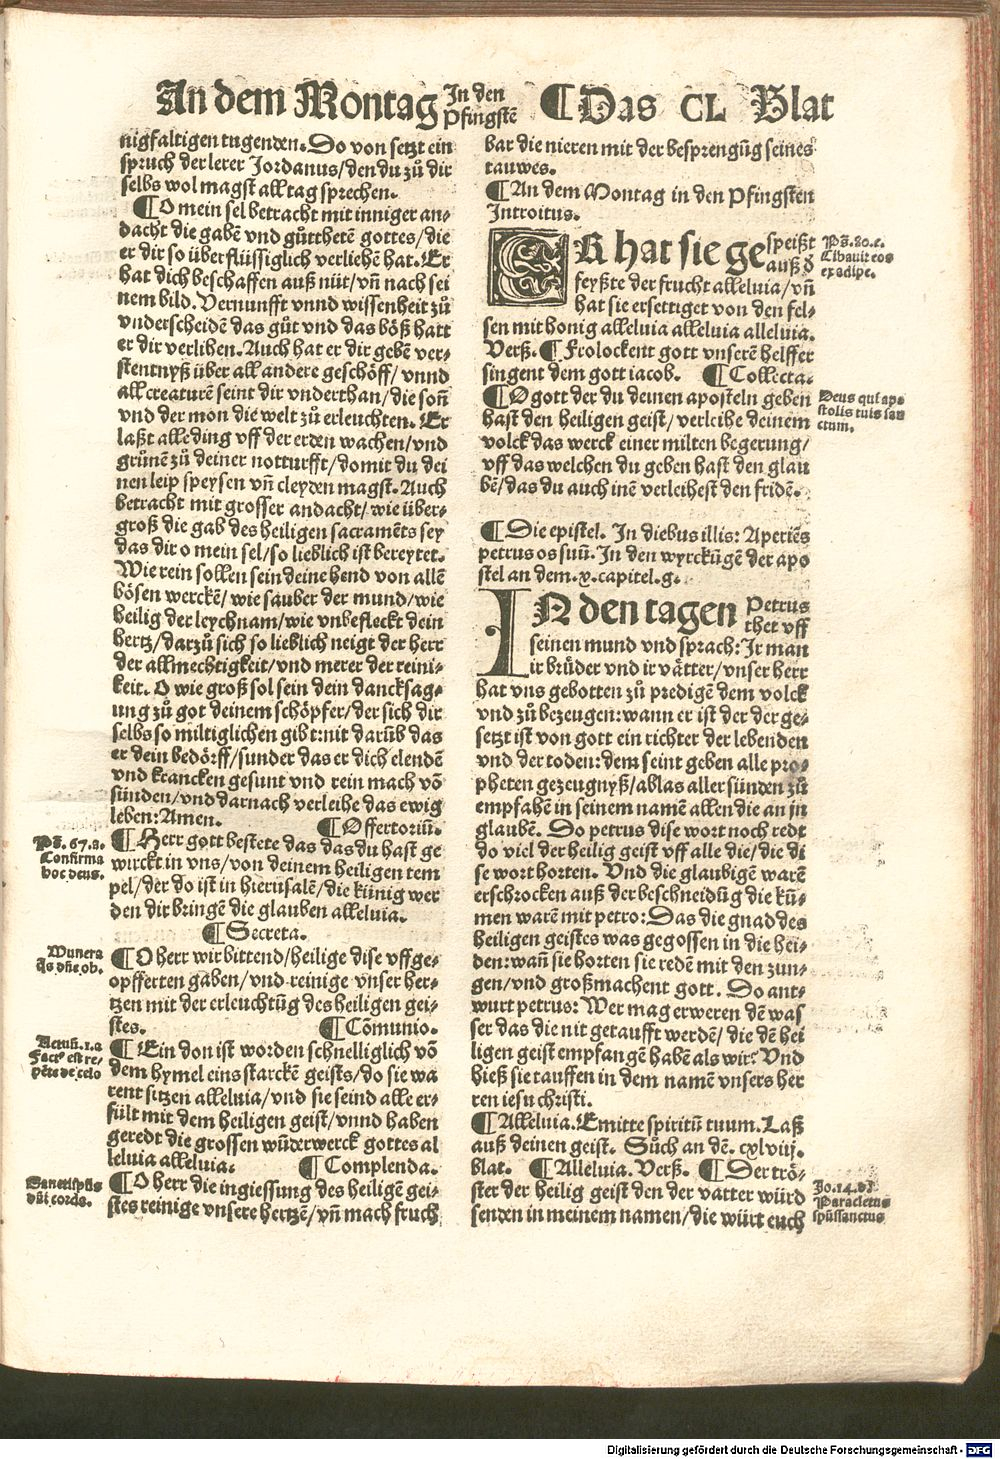 An dem Montag In den Pfingstē ¶ Das CL Blat
nigfaltigen tugenden. Do von setzt ein
spruch der lerer Jordanus/den du zů dir
selbs wol magst all tag sprechen.
¶ O mein sel betracht mit inniger an-
dacht die gabē vnd gůtthetē gottes/die
er dir so überflüssiglich verliehē hat. Er
hat dich beschaffen auß nüt/vn̄ nach sei
nem bild. Vernunfft vnnd wissenheit zů
vnderscheidē das gůt vnd das böß hatt
er dir verlihen. Auch hat er dir gebē ver-
stentnyß über all andere geschöff/vnnd
all creaturē seint dir vnderthan/die soñ
vnd der mon die welt zů erleuchten. Er
laßt alle ding vff der erden wachen/vnd
grůnē zů deiner notturfft/domit du dei
nen leip speysen vn̄ cleyden magst. Auch
betracht mit grosser andacht/wie über-
groß die gab des heiligen sacramēts sey
das dir o mein sel/so lieblich ist bereytet.
Wie rein sollen sein deine hend von allē
bösen werckē/wie sauber der mund/wie
heilig der leychnam/wie vnbefleckt dein
hertz/darzů sich so lieblich neigt der herr
der allmechtigkeit/vnd merer der reini-
keit. O wie groß sol sein dein dancksag-
ung zů got deinem schöpfer/der sich dir
selbs so miltiglichen gibt:nit darūb das
er dein bedörff/sunder das er dich elendē
vnd krancken gesunt vnd rein mach vō
sünden/vnd darnach verleihe das ewig
leben: Amen. ¶ Offertoriū.
Ps̄. 67.
Confirma
hoc deus.
¶ Herr gott bestete das das du hast ge
wirckt in vns/von deinem heiligen tem
pel/der do ist in hierusalē/die künig wer
den dir bringē die glauben alleluia.
¶ Secreta.
Munera
q̄s dn̄e ob.
¶ O herr wir bittend/heilige dise vffge-
opfferten gaben/vnd reinige vnser her-
tzen mit der erleuchtūg des heiligen gei-
stes. ¶ Cōmunio.
Actuū. 2. a
Fact⁹ est re-
pēte de celo
¶ Ein don ist worden schnelliglich vō
dem hymel eins starckē geists/do sie wa
rent sitzen alleluia/vnd sie seind alle er-
fült mit dem heiligen geist/vnnd haben
geredt die grossen wūderwerck gottes al
leluia alleluia. ¶ Complenda.
Sancti sp̄us
dn̄i corda.
¶ O herr die ingiessung des heiligē gei-
stes reinige vnsere hertzē/vn̄ mach fruch
bar die nieren mit der besprengūg seines
tauwes.
¶ An dem Montag in den Pfingsten
Introitus.
ER hat sie ge speißt
auß d̄
feyßte der frucht alleluia/vn̄
hat sie ersettiget von den fel-
sen mit honig alleluia alleluia alleluia.
Verß. ¶ Frolockent gott vnserē helffer
singent dem gott iacob. ¶ Collecta.
Ps̄. 80. c.
Cibauit eos
ex adipe.
¶ O gott der du deinen aposteln geben
hast den heiligen geist/verleihe deinem
volck das werck einer milten begerung/
vff das welchen du geben hast den glau
bē/das du auch inē verleihest den fridē.
Deus qui apo
stolis tuis san
ctum.
¶ Die epistel. In diebus illis: Aperiēs
petrus os suū. In den wyrckūgē der apo
stel an dem .x. capitel. g.
IN den tagen Petrus
thet vff
seinen mund vnd sprach: Ir man
ir brůder vnd ir vätter/vnser herr
hat vns gebotten zů predigē dem volck
vnd zů bezeugen:wann er ist der der ge-
setzt ist von gott ein richter der lebenden
vnd der toden:dem seint geben alle pro-
pheten gezeugnyß/ablas aller sünden zů
empfahē in seinem namē allen die an jn
glaubē. Do petrus dise wort noch redt
do viel der heilig geist vff alle die/die di
se wort horten. Vnd die glaubigē warē
erschrocken auß der beschneidūg die kū-
men warē mit petro: Das die gnad des
heiligen geistes was gegossen in die hei-
den:wañ sie horten sie redē mit den zun-
gen/vnd großmachent gott. Do ant-
wurt petrus: Wer mag erweren dē was
ser das die nit getaufft werdē/die dē hei
ligen geist empfangē habē als wir? Vnd
hieß sie tauffen in dem namē vnsers her
ren iesu christi.
¶ Alleluia. Emitte spiritū tuum. Laß
auß deinen geist. Sůch an dē. cxlviij.
blat. ¶ Alleluia. Verß. ¶ Der trö-
ster der heilig geist den der vatter würd
senden in meinem namen/die würt euch
Jo. 14. d
Paracletus
sp̄us sanctus
Digitalisierung gefördert durch die Deutsche Forschungsgemeinschaft - DFG